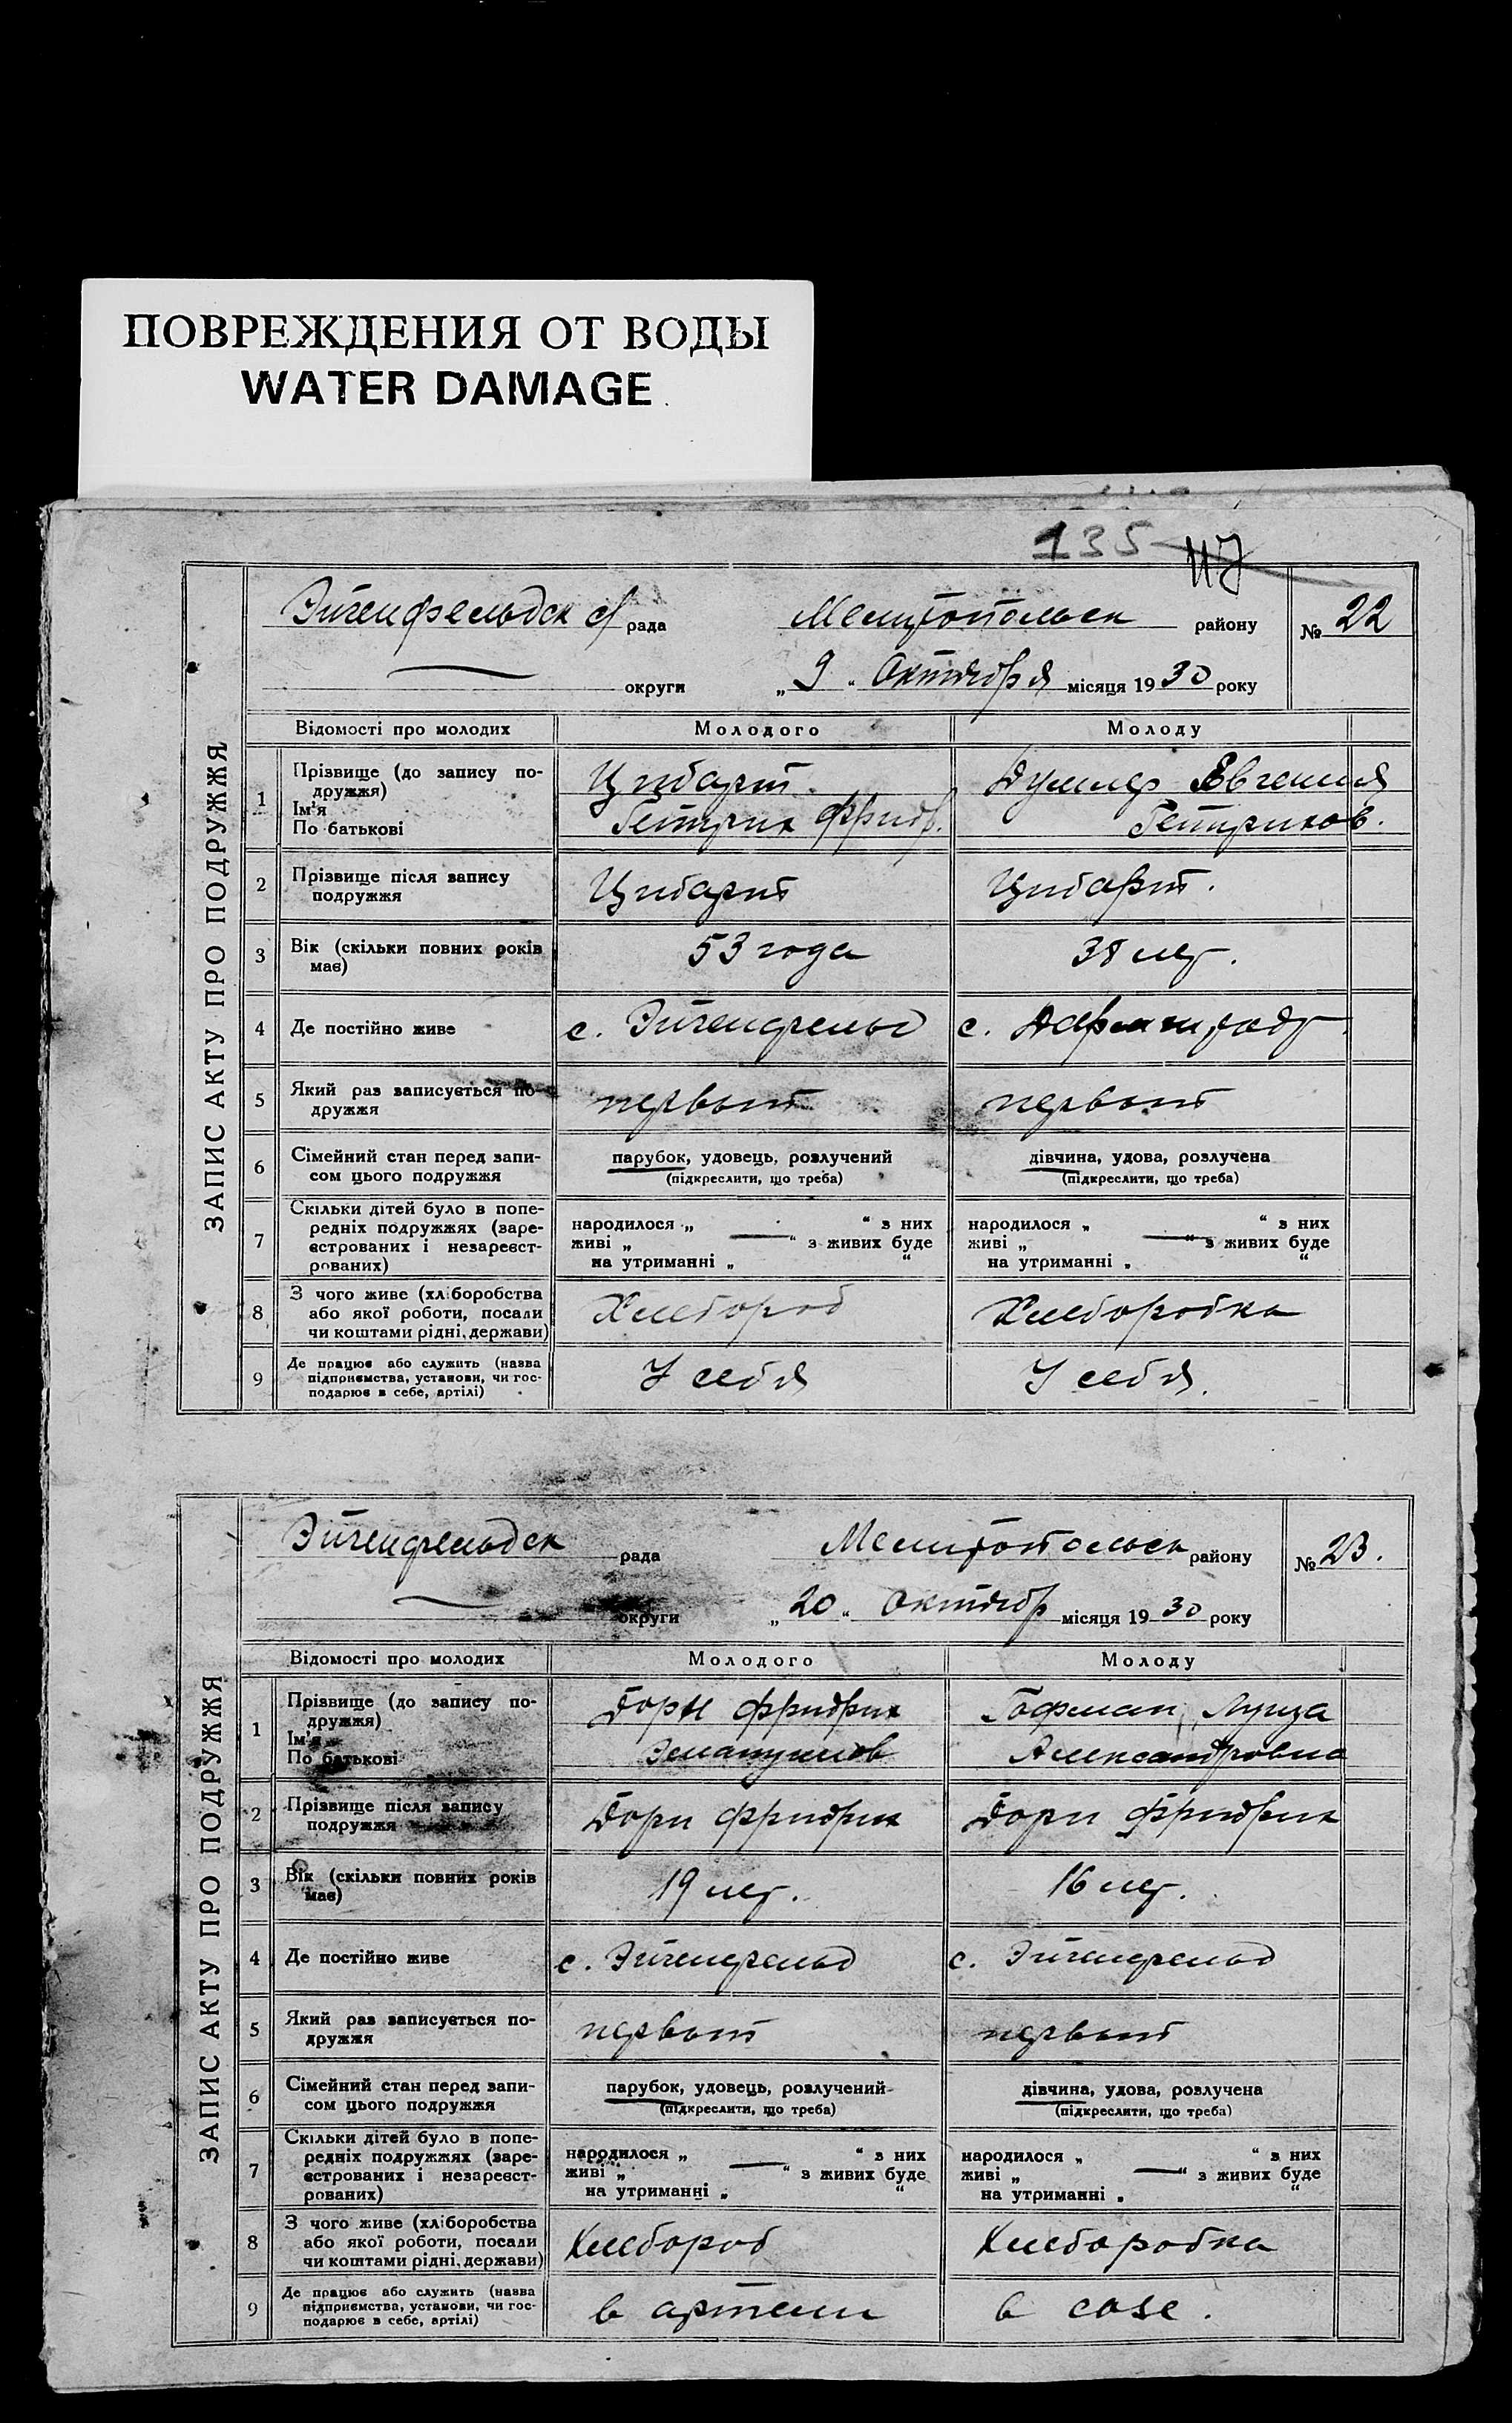 ПОВРЕЖДЕНИЯ ОТ ВОДЫ
WATER DAMAGE
135
ЗАПИС АКТУ ПРО ПОДРУЖЖЯ
Эйгенфельдск с/ рада Мелитопольск району № 22
округи „ 9 “ Октября місяця 19 30 року
Відомості про молодих Молодого Молоду
1 Прізвище (до запису по-
дружжя)
Ім'я
По батькові
Цибарт Думлер Євгения
Гейнрих Фридр. Гейнрихов.
2 Прізвище після запису
подружжя
Цибарт Цибарт.
3 Вік (скільки повних років
має)
53 года 38 лет.
4 Де постійно живе с. Эйгенфельд с. Дармштадт
5 Який раз записується по-
дружжя
первый первый
6 Сімейний стан перед запи-
сом цього подружжя
парубок, удовець, розлучений дівчина, удова, розлучена
(підкреслити, що треба) (підкреслити, що треба)
7 Скільки дітей було в попе-
редніх подружжях (заре-
єстрованих і незареєст-
рованих)
народилося „ “ з них народилося „ “ з них
живі „ — “ з живих буде живі „ — “ з живих буде
на утриманні „ “ на утриманні „ “
8 З чого живе (хліборобства
або якої роботи, посади
чи коштами рідні, держави)
Хлебороб Хлеборобка
9 Де працює або служить (назва
підприємства, установи, чи гос-
подарює в себе, артілі)
У себя У себя.
ЗАПИС АКТУ ПРО ПОДРУЖЖЯ
Эйгенфельдск рада Мелитопольск району № 23.
округи „ 20 “ Октябр місяця 19 30 року
Відомості про молодих Молодого Молоду
1 Прізвище (до запису по-
дружжя)
Ім'я
По батькові
Дорн Фридрих Гофман Луиза
Эмануилов Александровна
2 Прізвище після запису
подружжя
Дорн Фридрих Дорн Фридрих
3 Вік (скільки повних років
має)
19 лет. 16 лет.
4 Де постійно живе с. Эйгенфельд с. Эйгенфельд
5 Який раз записується по-
дружжя
первый первый
6 Сімейний стан перед запи-
сом цього подружжя
парубок, удовець, розлучений дівчина, удова, розлучена
(підкреслити, що треба) (підкреслити, що треба)
7 Скільки дітей було в попе-
редніх подружжях (заре-
єстрованих і незареєст-
рованих)
народилося „ “ з них народилося „ “ з них
живі „ — “ з живих буде живі „ — “ з живих буде
на утриманні „ “ на утриманні „ “
8 З чого живе (хліборобства
або якої роботи, посади
чи коштами рідні, держави)
Хлебороб Хлеборобка
9 Де працює або служить (назва
підприємства, установи, чи гос-
подарює в себе, артілі)
в артели в созе.